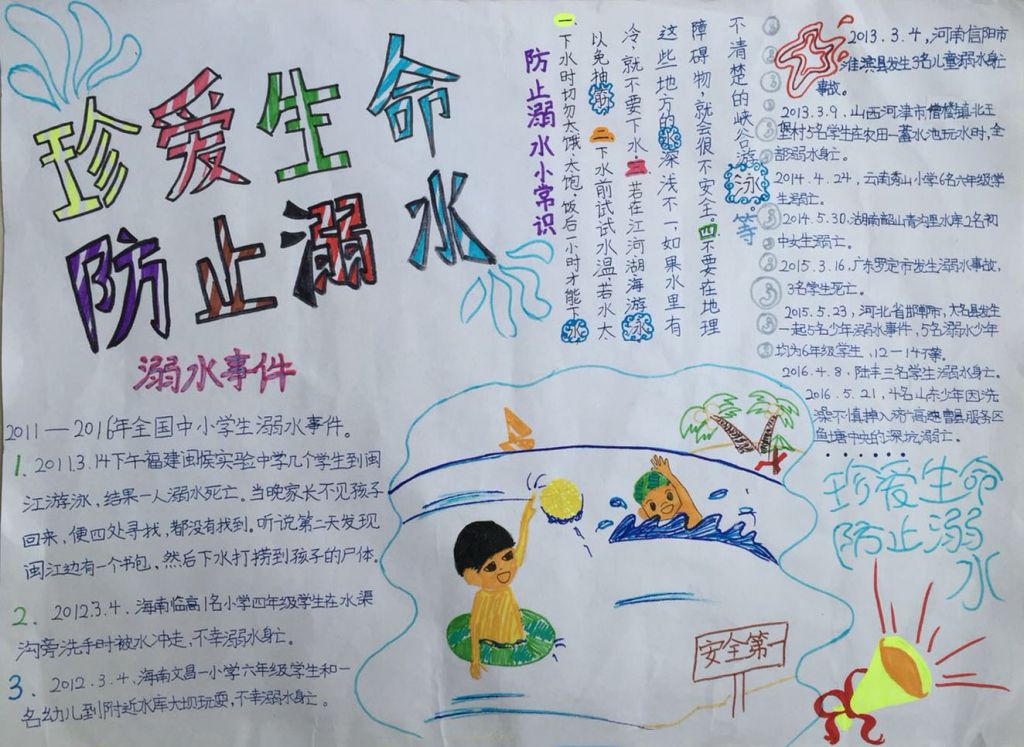 珍爱生命
防止溺水
溺水事件
2011—2016年全国中小学生溺水事件。
1. 2011.3.14下午福建闽候实验中学几个学生到闽
江游泳，结果一人溺水死亡。当晚家长不见孩子
回来，便四处寻找，都没有找到。听说第二天发现
闽江边有一个书包，然后下水打捞到孩子的尸体。
2. 2012.3.4.海南临高1名小学四年级学生在水渠
沟旁洗手时被水冲走，不幸溺水身亡。
3. 2012.3.4.海南文昌一小学六年级学生和一
名幼儿到附近水库大坝玩耍，不幸溺水身亡。
防止溺水小常识
一.下水时切勿太饿、太饱，饭后一小时才能下水
以免抽筋 二.下水前试试水温，若水太
冷，就不要下水。三.若在江河湖海游泳
这些地方的水深浅不一，如果水里有
障碍物，就会很不安全。四.不要在地理
不清楚的峡谷游泳。等
2013.3.4，河南信阳市
淮滨县发生3名儿童溺水身亡
事故。
2013.3.9，山西河津市僧楼镇北王
堡村5名学生在农田一蓄水池玩水时，全
部溺水身亡。
2014.4.24，云南秀山小学6名六年级学
生溺亡。
2014.5.30.湖南韶山青沟里水库2名初
中女生溺亡。
2015.3.16，广东罗定市发生溺水事故，
3名学生死亡。
2015.5.23，河北省邯郸市，大名县发生
一起5名少年溺水事件，5名溺水少年
均为6年级学生，12—14岁。
2016.4.8.陆丰三名学生溺水身亡。
2016.5.21，4名山东少年因洗
澡不慎掉入济广高速曹县服务区
鱼塘中央的深坑溺亡。
......
珍爱生命
防止溺
水
安全第一